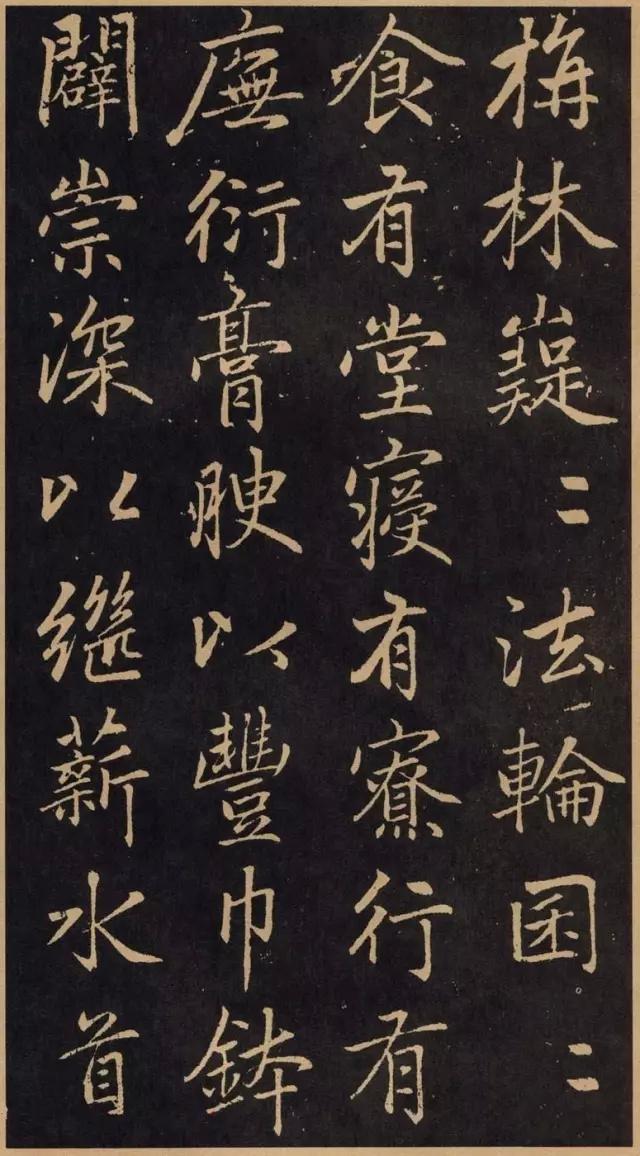 栴林嶷〻法輪囷〻
食有堂寢有寮行有
廡衍膏腴以豐巾鉢
闢崇深以繼薪水首